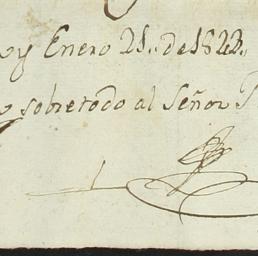 oy Enero 21,, de 1822,,
y sobretodo al Señor